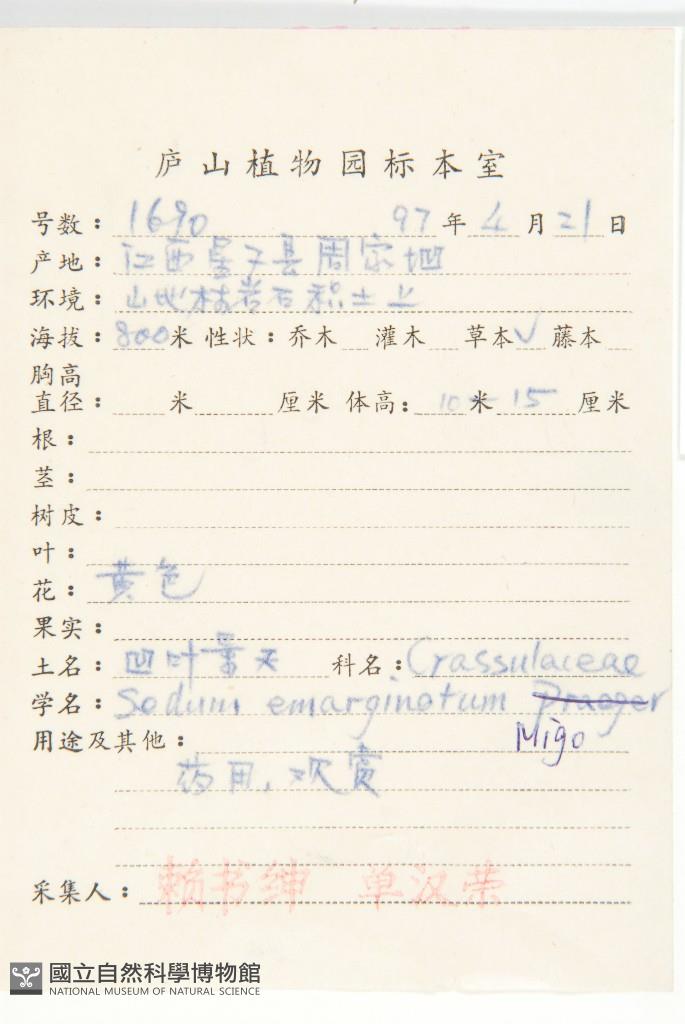 庐山植物园标本室
号数： 1690 97 年 4 月 21 日
产地： 江西星子县周家地
环境： 山地林岩石积土上
海拔： 800 米 性状： 乔木 灌木 草本 √ 藤本
胸高
直径： 米 厘米 体高： 10 米 - 15 厘米
根：
茎：
树皮：
叶：
花： 黄色
果实：
土名： 凹叶景天 科名： Crassulaceae
学名： Sedum emarginatum Praeger
Migo
用途及其他：
药用，观赏
采集人： 赖书绅 单汉荣
國立自然科學博物館
NATIONAL MUSEUM OF NATURAL SCIENCE